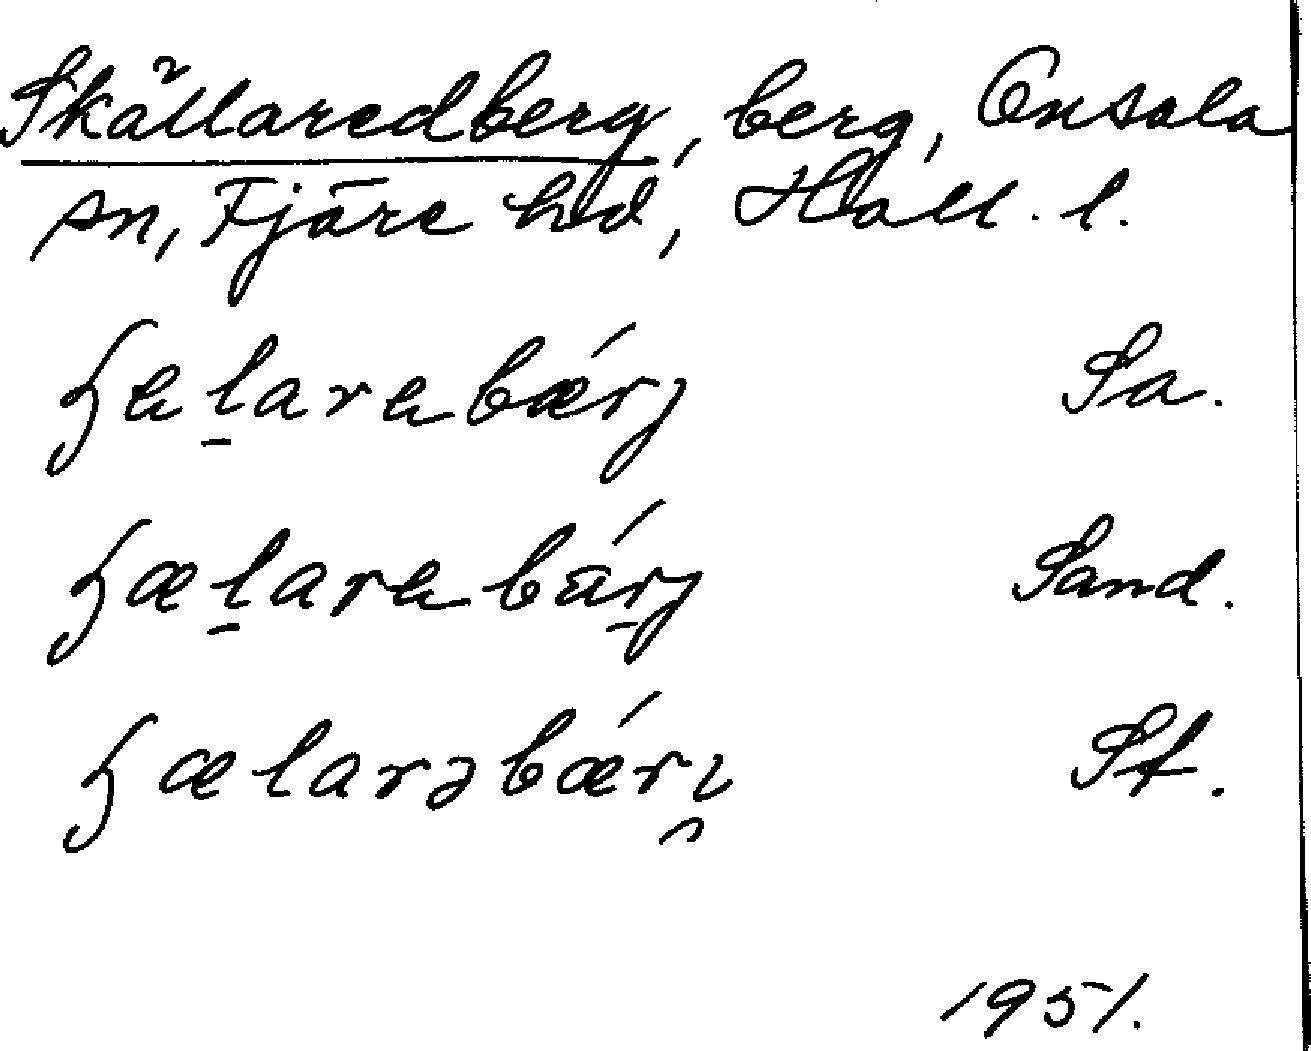 Skällaredberg, berg, Onsala
sn, Fjäre hd, Hall. l.
ɧel̠arebǽrj Sa.
ɧæl̠arebä́r̠j Sand.
ɧælarəbǽrɩ̯ Sf.
1951.